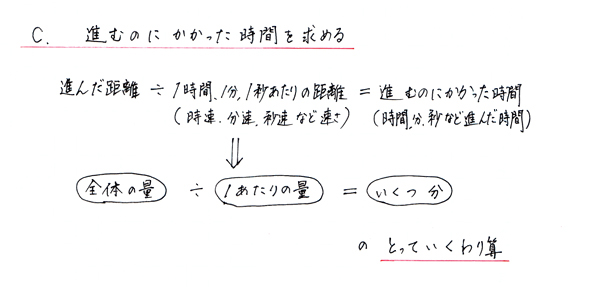 C. 進むのにかかった時間を求める
進んだ距離 ÷ 1時間、1分、1秒あたりの距離 = 進むのにかかった時間
(時速、分速、秒速など速さ) (時間、分、秒など進んだ時間)
⇓
全体の量 ÷ 1あたりの量 = いくつ分
の とっていくわり算